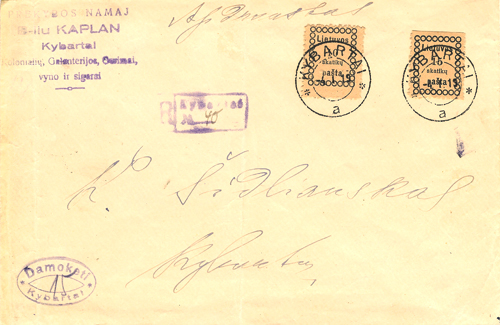 PREKYBOS NAMAJ
B-lu KAPLAN
Kybartai
Kolonialų, Galanterijos, Čerimai,
vyno ir sigarai
Apdraustas
Lietuvos
skatikų
pašta
KYBARTAI
a
Lietuvos
15
skatikų
pašta
KYBARTAI
a
R Kybartai
№ 40
P. Šidlauskas
Kybartų
Damokėti
Kybartai